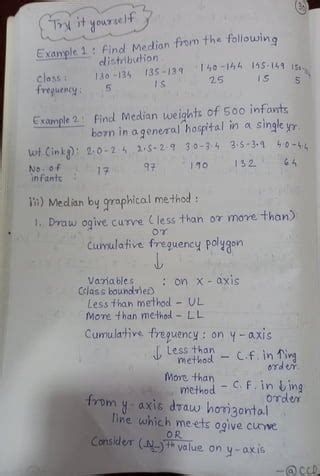 30
Try it yourself
Example 1 : Find Median from the following
distribution.
Class : 130-134 135-139 140-144 145-149 150-
frequency : 5 15 25 15 5
Example 2 : Find Median weights of 500 infants
born in a general hospital in a single yr.
Wt. (in kg) : 2.0-2.4 2.5-2.9 3.0-3.4 3.5-3.9 4.0-4.4
No. of
infants : 17 97 190 132 64
iii) Median by graphical method :
1. Draw ogive curve (less than or more than)
or
Cumulative frequency polygon
↓
Variables : on x-axis
(class boundries)
Less than method - UL
More than method - LL
Cumulative frequency : on y-axis
↓ Less than
method - C.F. in ↑ing
order
More than
method - C.F. in ↓ing
order
from y-axis draw horizontal
line which meets ogive curve
OR
Consider (N/2)th value on y-axis
-@CCD